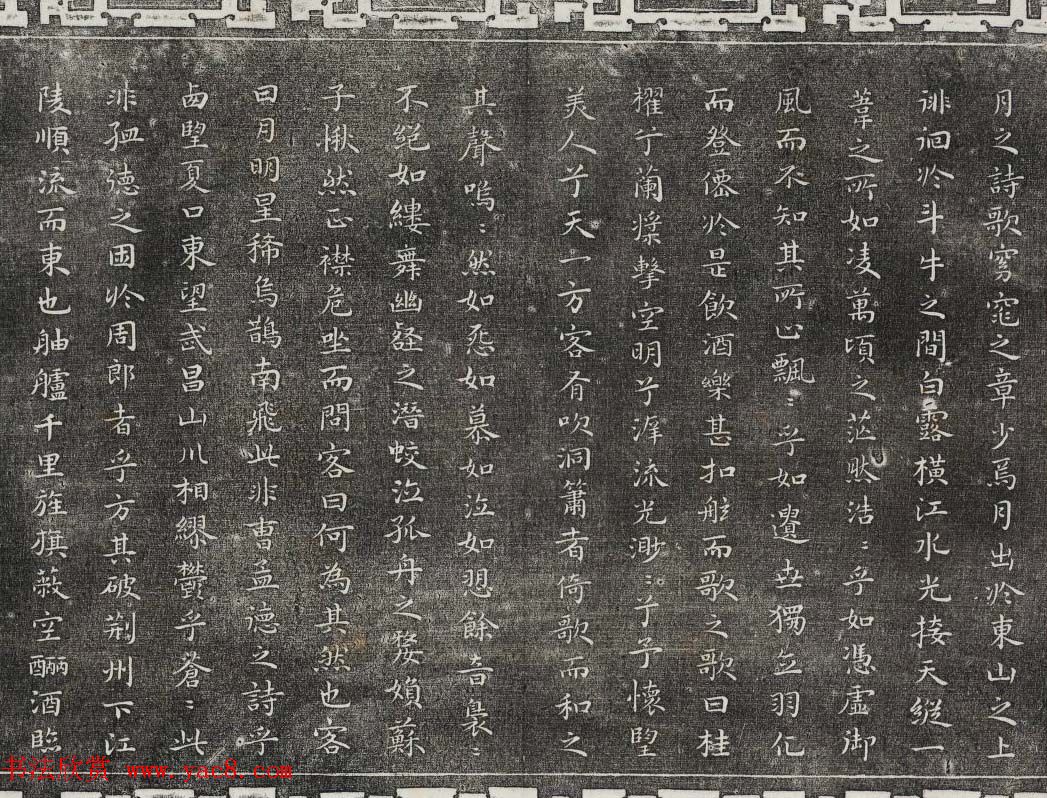 月之詩歌窈窕之章少焉月出於東山之上
徘徊於斗牛之間白露橫江水光接天縱一
葦之所如凌萬頃之茫然浩〻乎如憑虛御
風而不知其所止飄〻乎如遺世獨立羽化
而登僊於是飲酒樂甚扣舷而歌之歌曰桂
櫂兮蘭槳擊空明兮泝流光渺〻兮予懷望
美人兮天一方客有吹洞簫者倚歌而和之
其聲嗚〻然如怨如慕如泣如愬餘音裊〻
不絕如縷舞幽壑之潛蛟泣孤舟之嫠婦蘇
子愀然正襟危坐而問客曰何為其然也客
曰月明星稀烏鵲南飛此非曹孟德之詩乎
西望夏口東望武昌山川相繆鬱乎蒼〻此
非孟德之困於周郎者乎方其破荆州下江
陵順流而東也舳艫千里旌旗蔽空釃酒臨
书法欣赏 www.yac8.com